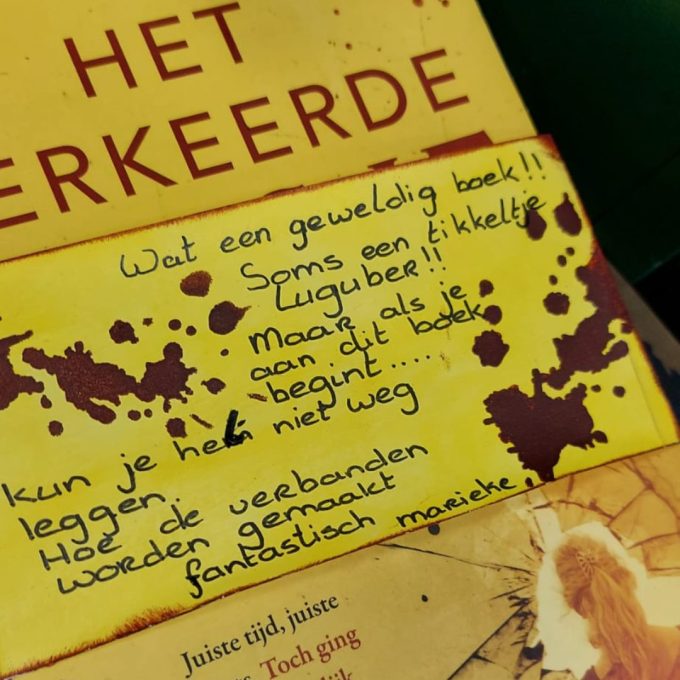 HET
ERKEERDE
Wat een geweldig boek!!
Soms een tikkeltje
Luguber!!
Maar als je
aan dit boek
begint....
kun je het niet weg
leggen.
Hoe de verbanden
worden gemaakt
fantastisch marieke
Juiste tijd, juiste
Toch ging